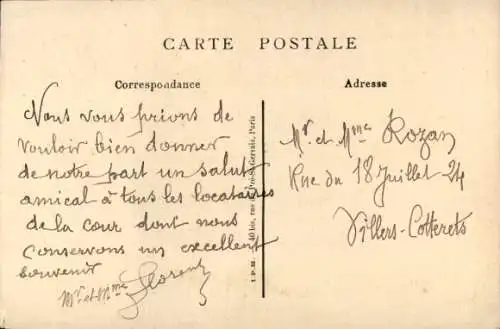 CARTE POSTALE
Correspondance
Nous vous prions de
vouloir bien donner
de notre part un salut
amical à tous les locataires
de la cour dont nous
conservons un excellent
souvenir
Mr et Mme Florent
Adresse
Mr. et Mme Rozan
Rue du 18 Juillet 24
Villers-Cotterets
bis, rue du Pré-St-Gervais, Paris